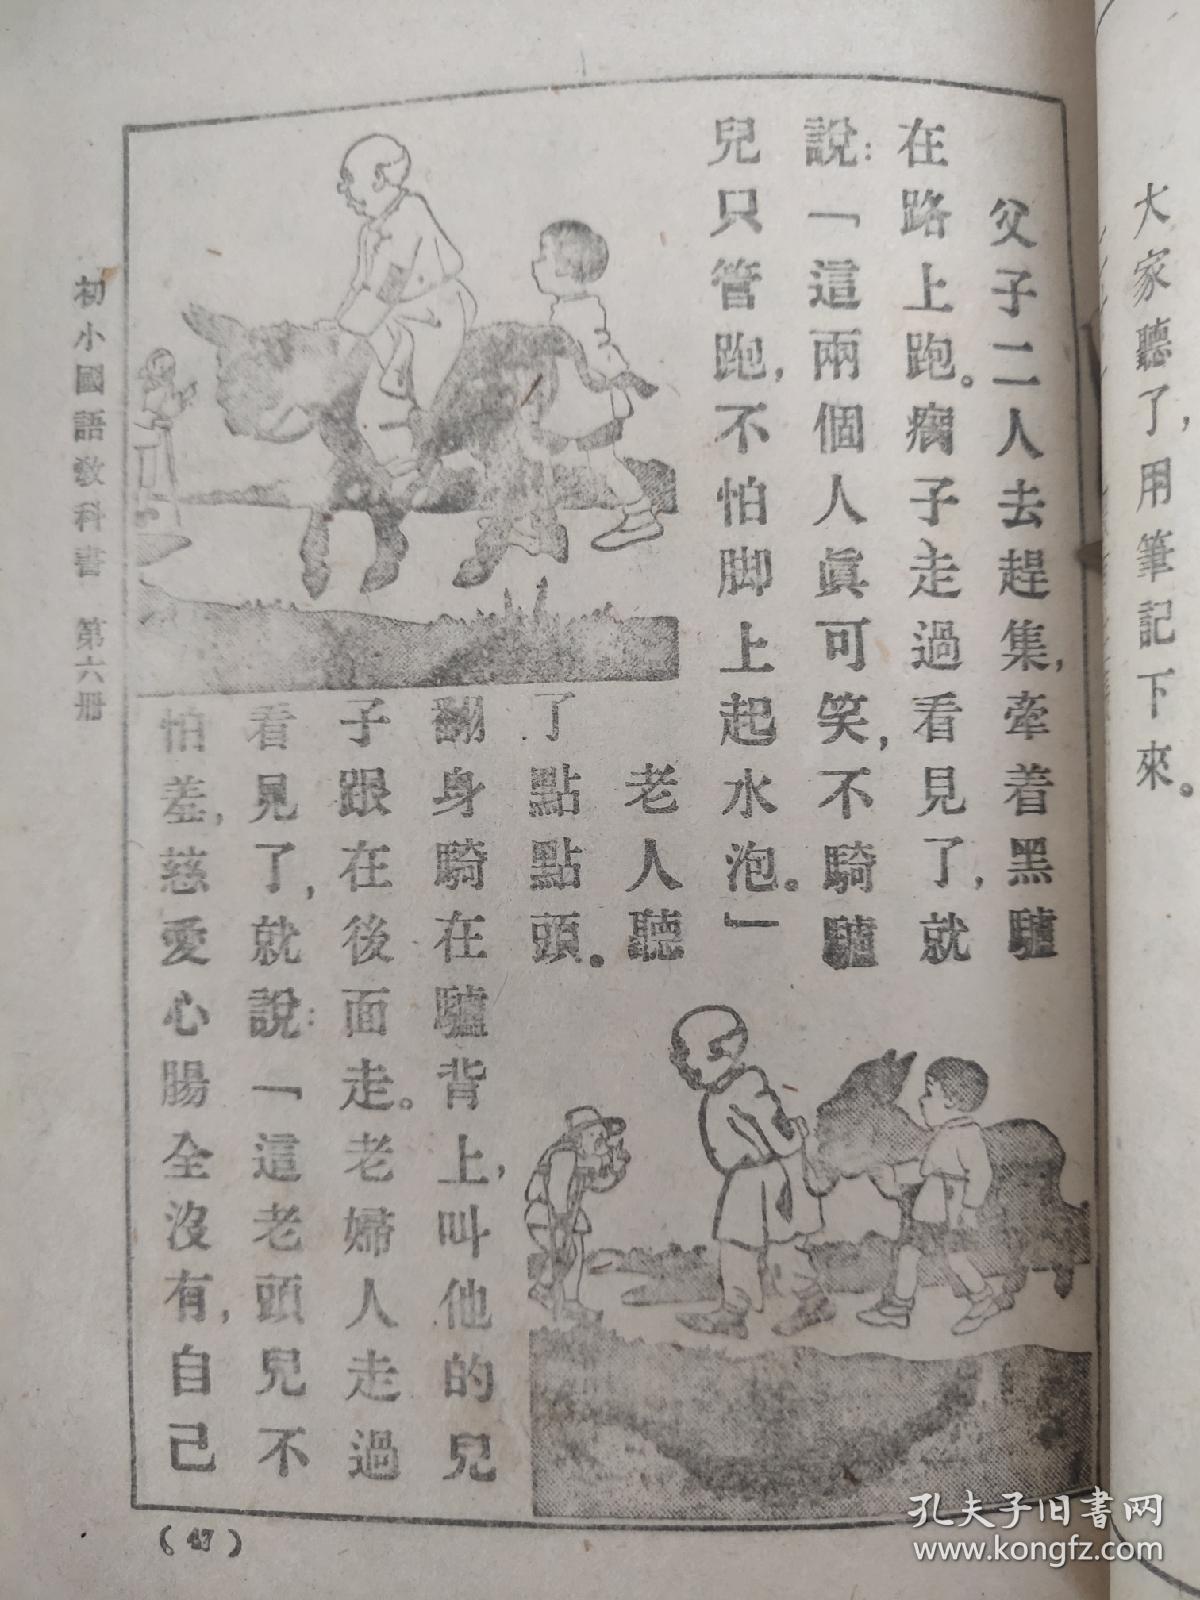 大家聽了，用筆記下來。
父子二人去趕集，牽着黑驢
在路上跑。癩子走過看見了，就
說：「這兩個人眞可笑，不騎驢
兒只管跑，不怕脚上起水泡。」
老人聽
了點點頭。
翻身騎在驢背上，叫他的兒
子跟在後面走。老婦人走過
看見了，就說：「這老頭兒不
怕羞，慈愛心腸全沒有，自己
初小國語敎科書 第六册
(47)
孔夫子旧书网
www.kongfz.com